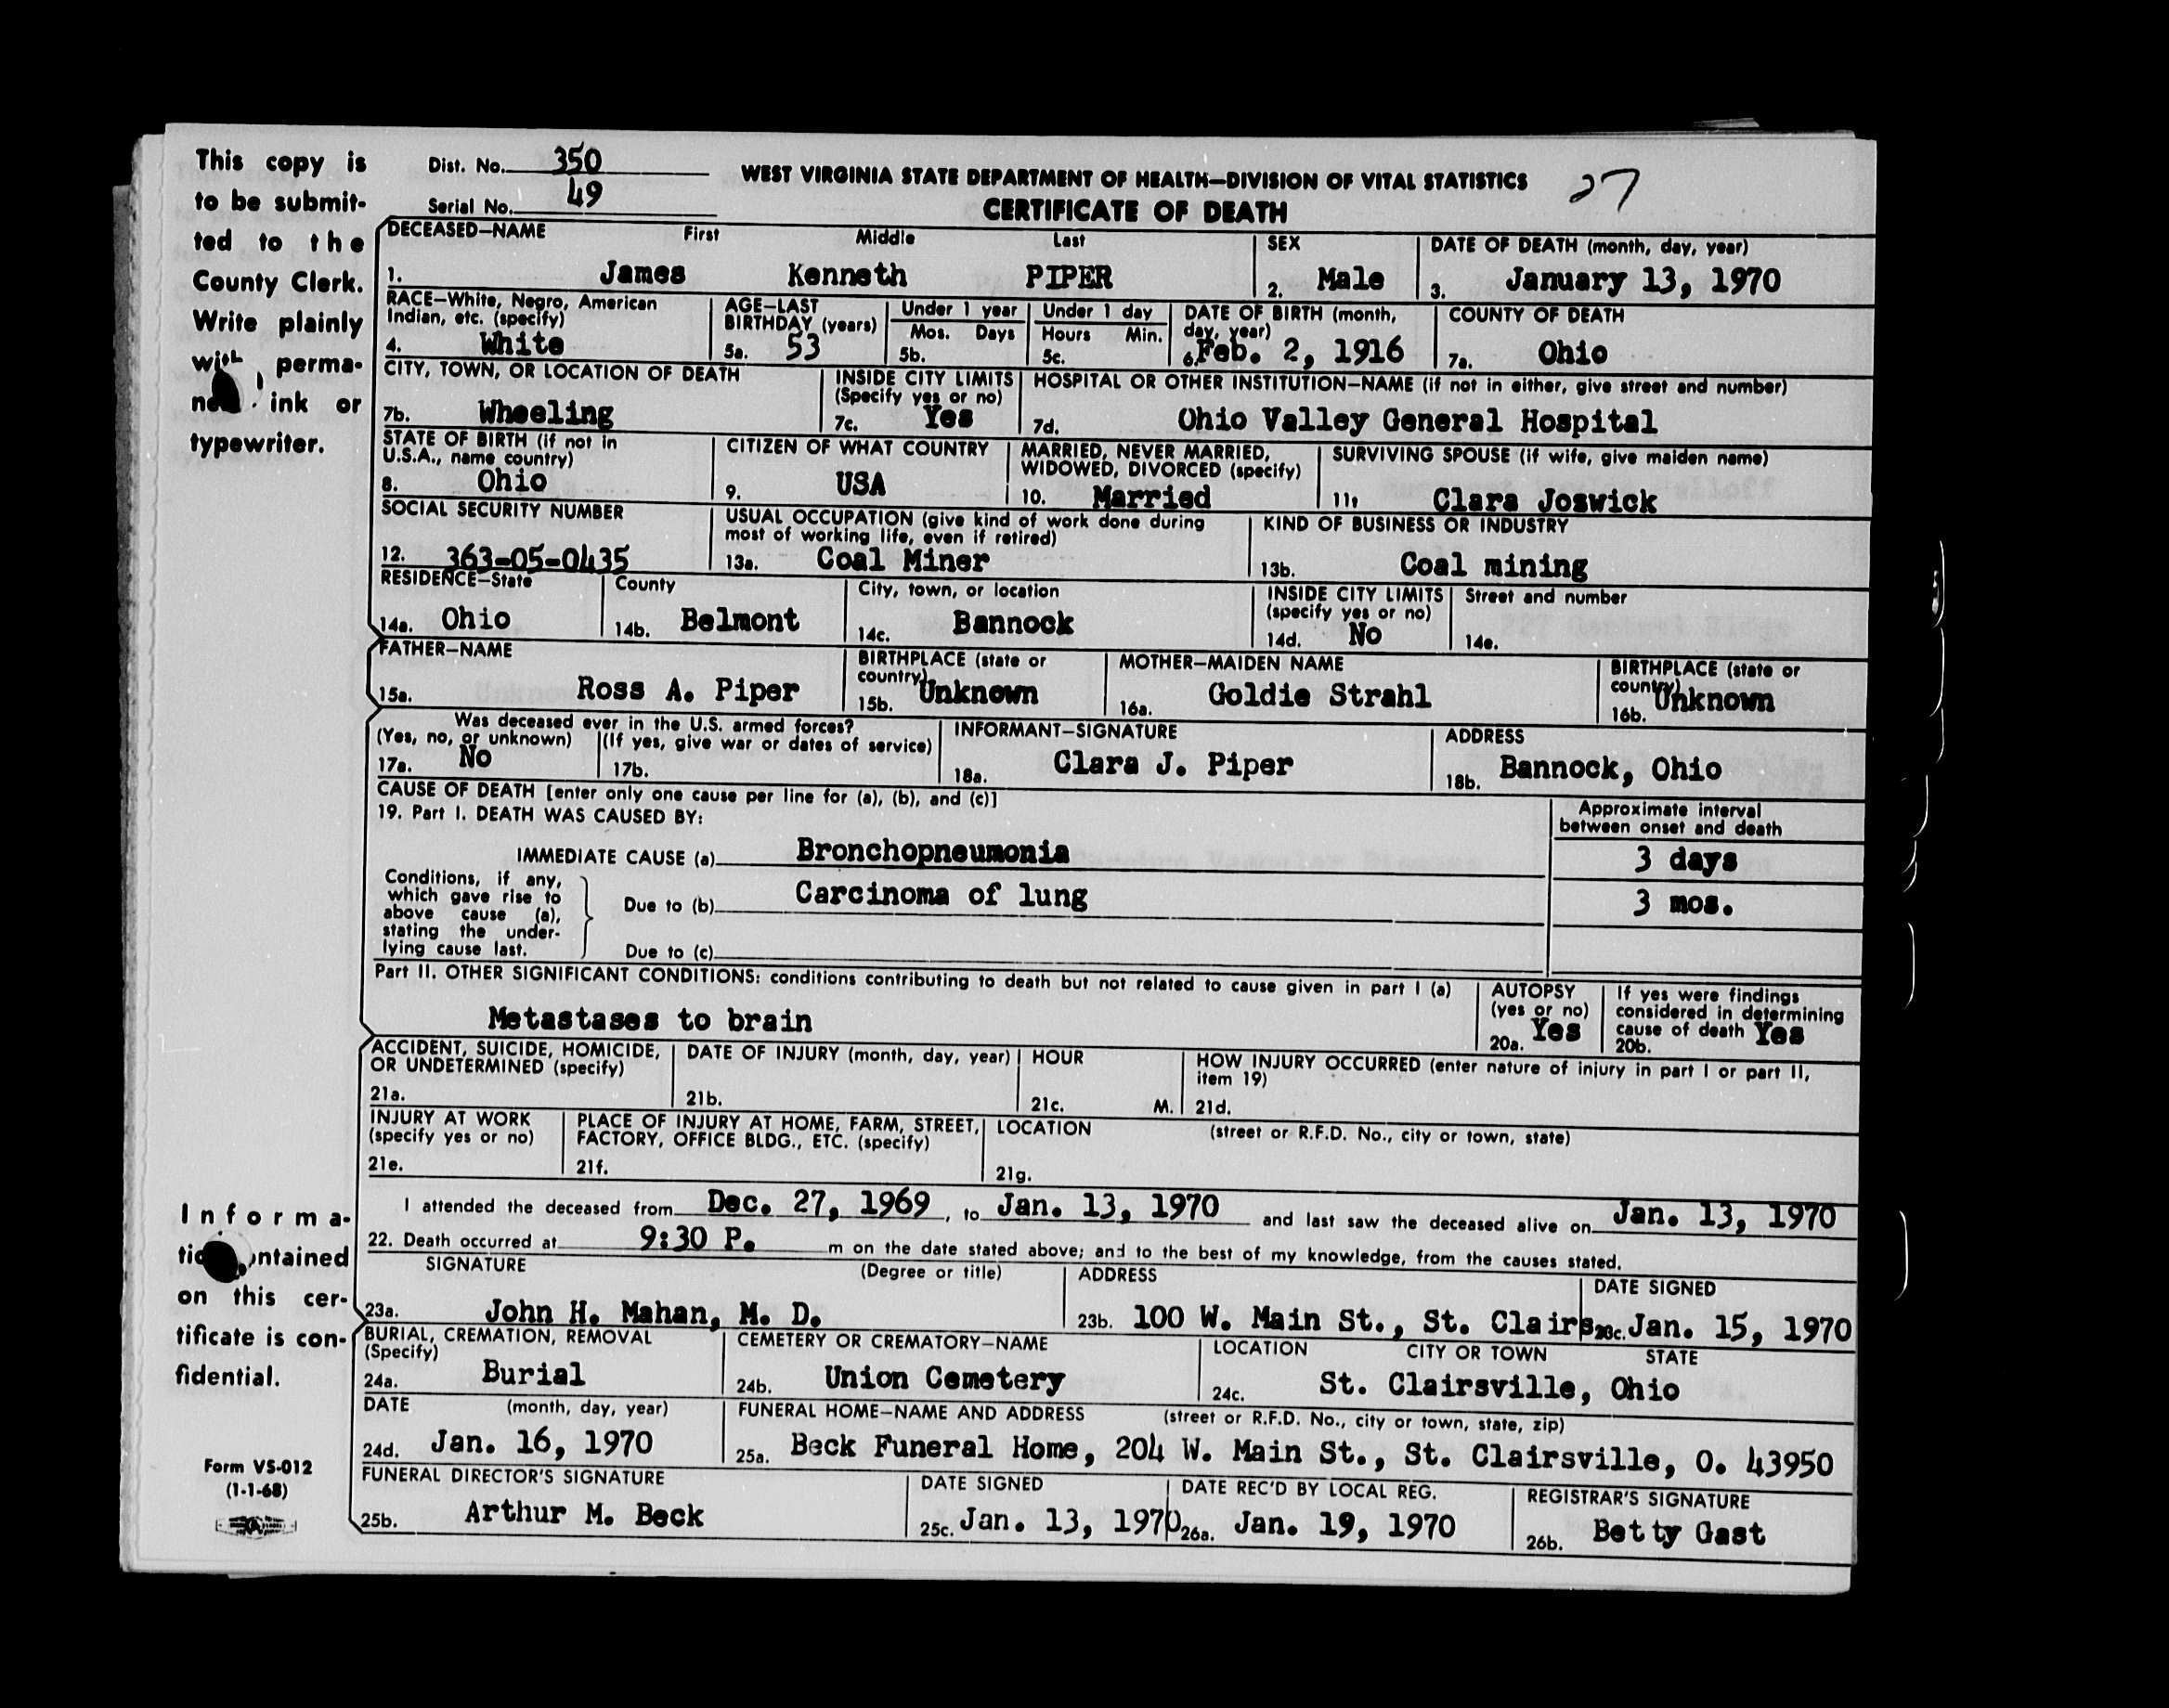 This copy is
to be submit-
ted to the
County Clerk.
Write plainly
with perma-
ink or
typewriter.
Dist. No. 350
Serial No. 49
WEST VIRGINIA STATE DEPARTMENT OF HEALTH—DIVISION OF VITAL STATISTICS 27
CERTIFICATE OF DEATH
DECEASED—NAME First Middle Last SEX DATE OF DEATH (month, day, year)
1. James Kenneth PIPER 2. Male 3. January 13, 1970
RACE—White, Negro, American Indian, etc. (specify) AGE—LAST BIRTHDAY (years) Under 1 year Mos. Days Under 1 day Hours Min. DATE OF BIRTH (month, day, year) COUNTY OF DEATH
4. White 5a. 53 5b. 5c. 6. Feb. 2, 1916 7a. Ohio
CITY, TOWN, OR LOCATION OF DEATH INSIDE CITY LIMITS (Specify yes or no) HOSPITAL OR OTHER INSTITUTION—NAME (if not in either, give street and number)
7b. Wheeling 7c. Yes 7d. Ohio Valley General Hospital
STATE OF BIRTH (if not in U.S.A., name country) CITIZEN OF WHAT COUNTRY MARRIED, NEVER MARRIED, WIDOWED, DIVORCED (specify) SURVIVING SPOUSE (if wife, give maiden name)
8. Ohio 9. USA 10. Married 11. Clara Joswick
SOCIAL SECURITY NUMBER USUAL OCCUPATION (give kind of work done during most of working life, even if retired) KIND OF BUSINESS OR INDUSTRY
12. 363-05-0435 13a. Coal Miner 13b. Coal mining
RESIDENCE—State County City, town, or location INSIDE CITY LIMITS (specify yes or no) Street and number
14a. Ohio 14b. Belmont 14c. Bannock 14d. No 14e.
FATHER—NAME BIRTHPLACE (state or country) MOTHER—MAIDEN NAME BIRTHPLACE (state or country)
15a. Ross A. Piper 15b. Unknown 16a. Goldie Strahl 16b. Unknown
Was deceased ever in the U.S. armed forces?
(Yes, no, or unknown) (If yes, give war or dates of service) INFORMANT—SIGNATURE ADDRESS
17a. No 17b. 18a. Clara J. Piper 18b. Bannock, Ohio
CAUSE OF DEATH [enter only one cause per line for (a), (b), and (c)]
19. Part I. DEATH WAS CAUSED BY: Approximate interval between onset and death
IMMEDIATE CAUSE (a) Bronchopneumonia 3 days
Conditions, if any,
which gave rise to
above cause (a),
stating the under-
lying cause last.
Due to (b) Carcinoma of lung 3 mos.
Due to (c)
Part II. OTHER SIGNIFICANT CONDITIONS: conditions contributing to death but not related to cause given in part I (a)
Metastases to brain
AUTOPSY (yes or no) 20a. Yes
If yes were findings considered in determining cause of death 20b. Yes
ACCIDENT, SUICIDE, HOMICIDE, OR UNDETERMINED (specify) DATE OF INJURY (month, day, year) HOUR HOW INJURY OCCURRED (enter nature of injury in part I or part II, item 19)
21a. 21b. 21c. M. 21d.
INJURY AT WORK (specify yes or no) PLACE OF INJURY AT HOME, FARM, STREET, FACTORY, OFFICE BLDG., ETC. (specify) LOCATION (street or R.F.D. No., city or town, state)
21e. 21f. 21g.
I attended the deceased from Dec. 27, 1969, to Jan. 13, 1970 and last saw the deceased alive on Jan. 13, 1970
22. Death occurred at 9:30 P. m on the date stated above; and to the best of my knowledge, from the causes stated.
SIGNATURE (Degree or title) ADDRESS DATE SIGNED
23a. John H. Mahan, M. D. 23b. 100 W. Main St., St. Clairs 23c. Jan. 15, 1970
BURIAL, CREMATION, REMOVAL (Specify) CEMETERY OR CREMATORY—NAME LOCATION CITY OR TOWN STATE
24a. Burial 24b. Union Cemetery 24c. St. Clairsville, Ohio
DATE (month, day, year) FUNERAL HOME—NAME AND ADDRESS (street or R.F.D. No., city or town, state, zip)
24d. Jan. 16, 1970 25a. Beck Funeral Home, 204 W. Main St., St. Clairsville, O. 43950
FUNERAL DIRECTOR'S SIGNATURE DATE SIGNED DATE REC'D BY LOCAL REG. REGISTRAR'S SIGNATURE
25b. Arthur M. Beck 25c. Jan. 13, 1970 26a. Jan. 19, 1970 26b. Betty Gast
Informa-
ontained
on this cer-
tificate is con-
fidential.
Form VS-012
(1-1-68)